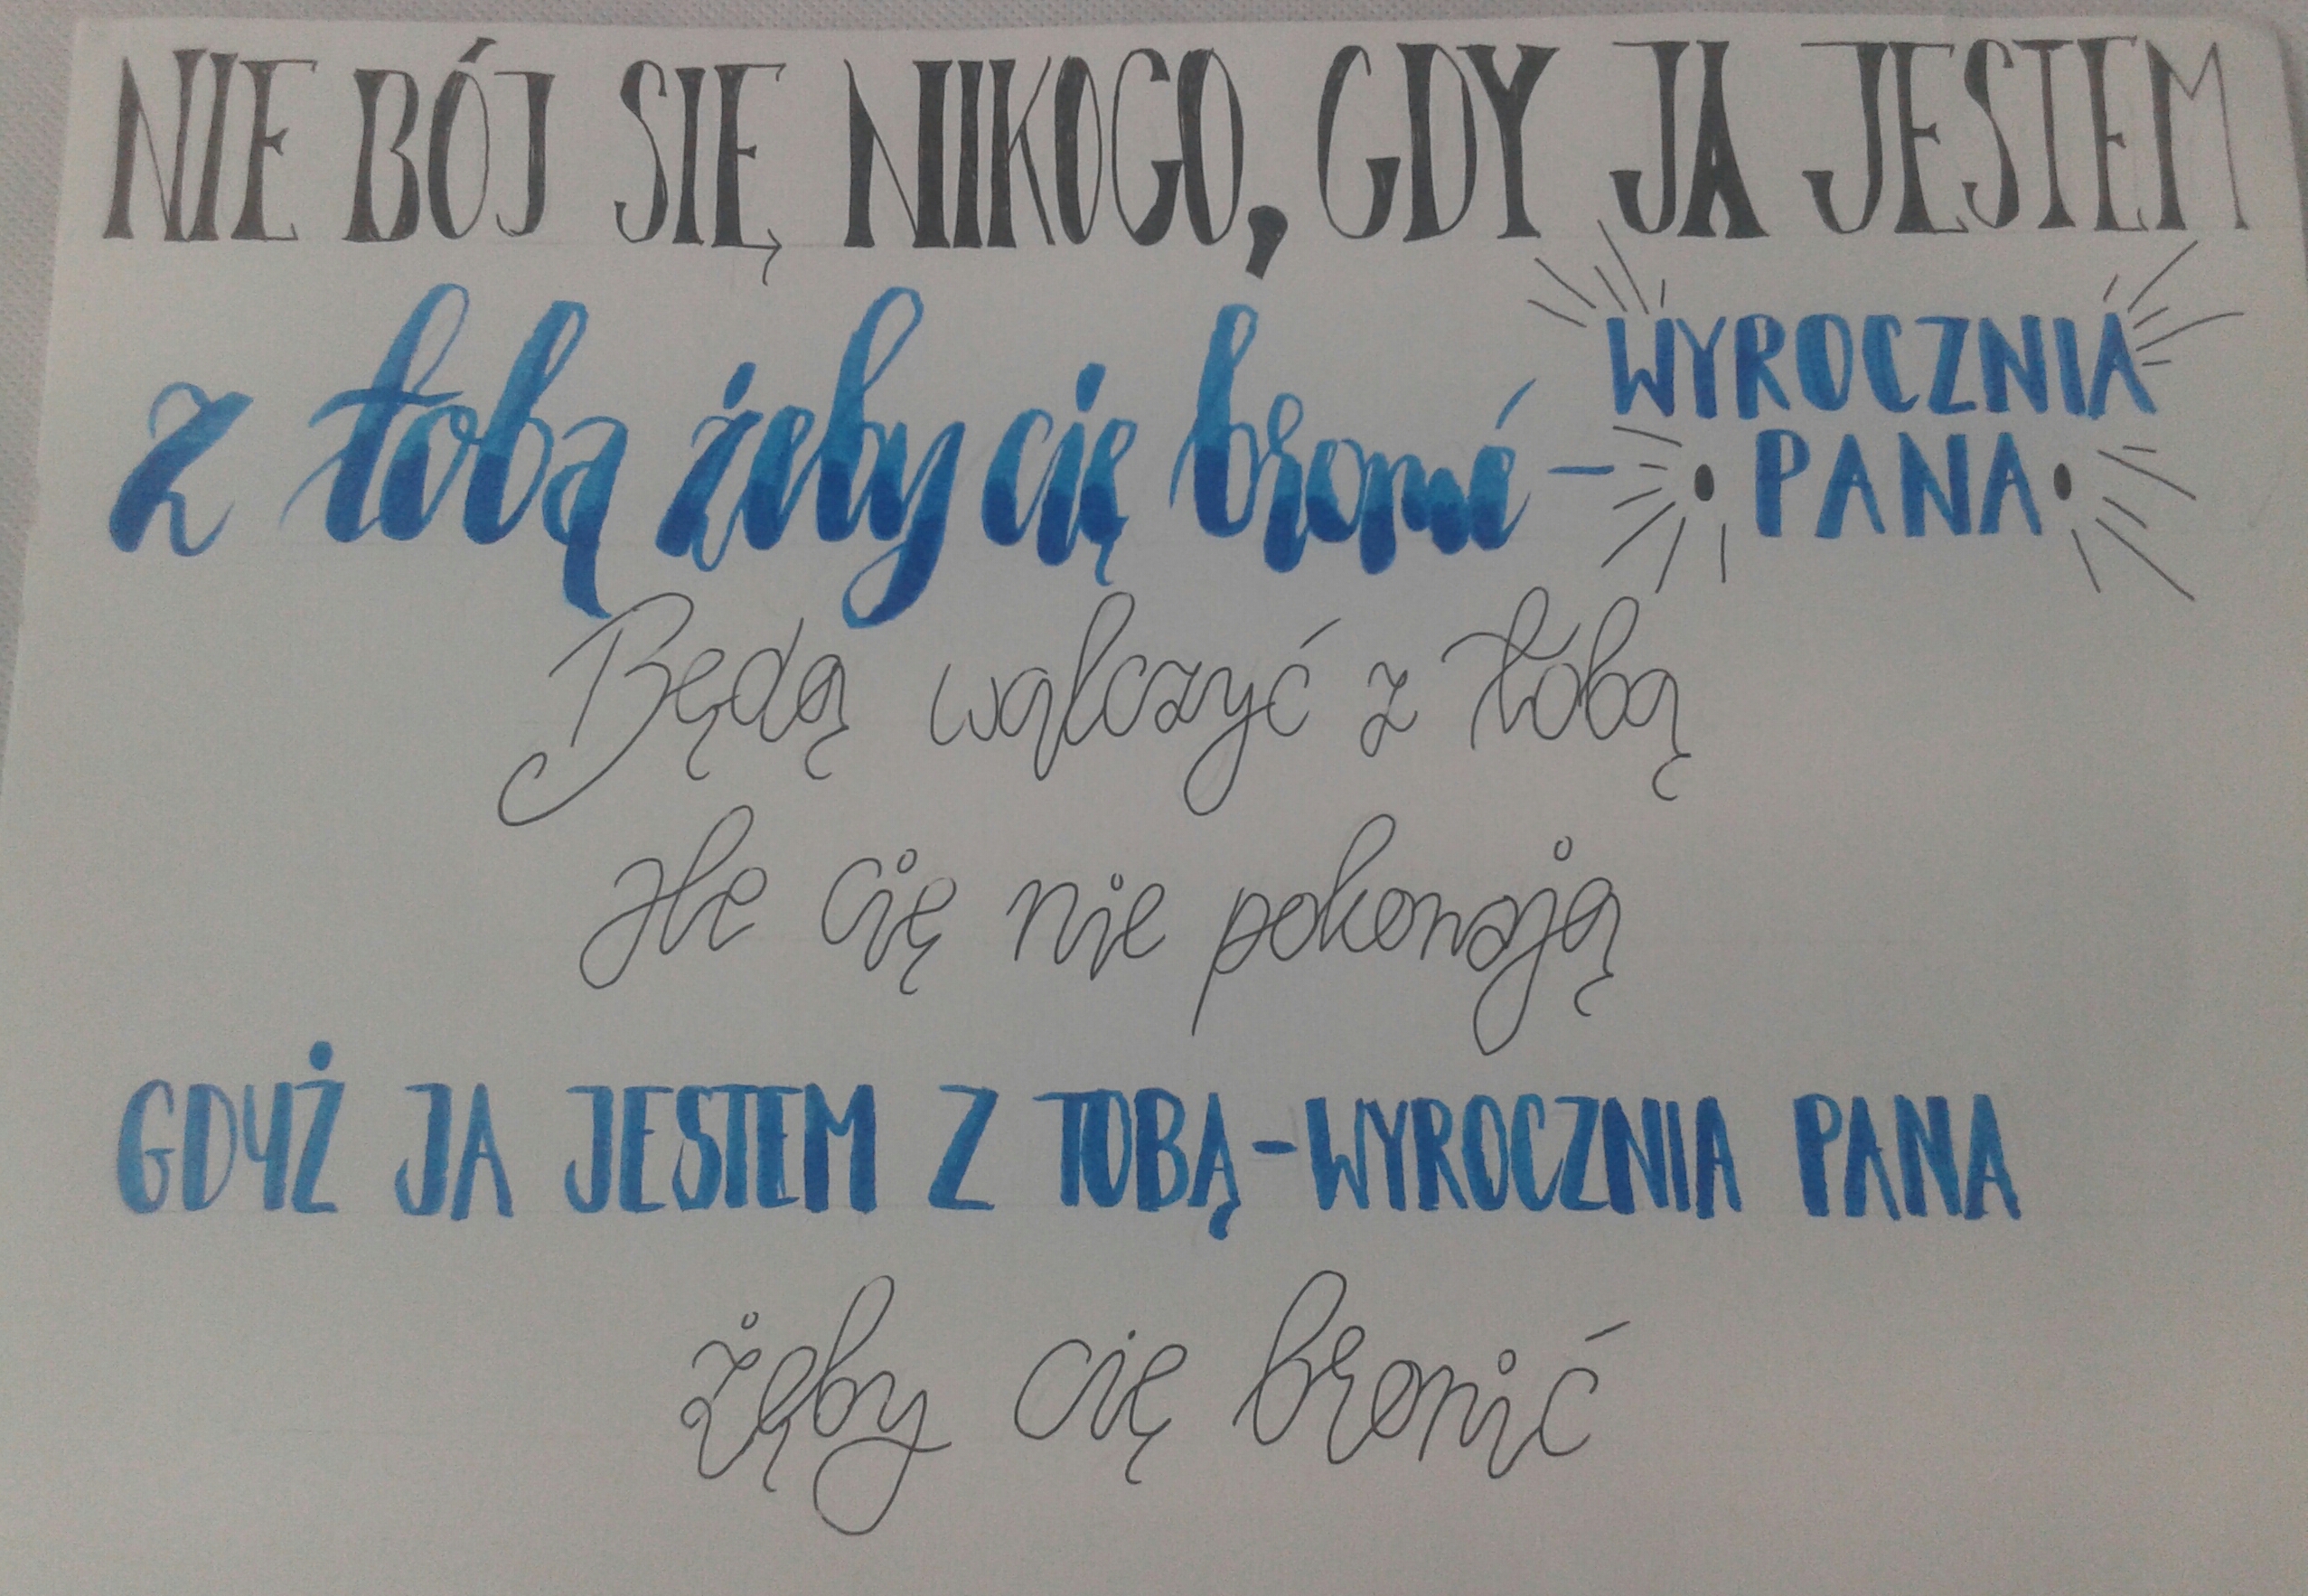 NIE BÓJ SIĘ NIKOGO, GDY JA JESTEM
z tobą żeby cię bronić – WYROCZNIA
PANA
Będą wąlczyć z tobą
Ale cię nie pokonają
GDYŻ JA JESTEM Z TOBĄ-WYROCZNIA PANA
żęby cię bronić